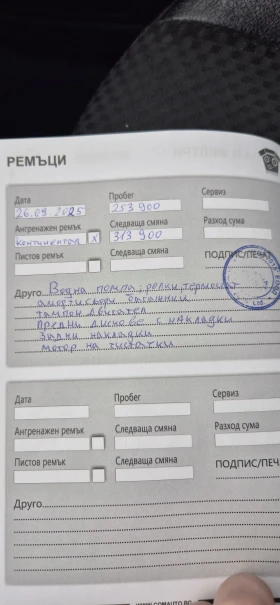 РЕМЪЦИ
Дата Пробег Сервиз
26.09.2025 253 900
Ангренажен ремък Следваща смяна Разход сума
Континентал x 313 900
Пистов ремък Следваща смяна ПОДПИС/ПЕЧ
Друго Водна помпа, релки, термостат
амортисьори багажник
тампон двигател
Предни дискове с накладки
Задни накладки
мотор на чистачки
Дата Пробег Сервиз
Ангренажен ремък Следваща смяна Разход сума
Пистов ремък Следваща смяна ПОДПИС/ПЕЧ
Друго
WWW.COMAUTO.BG